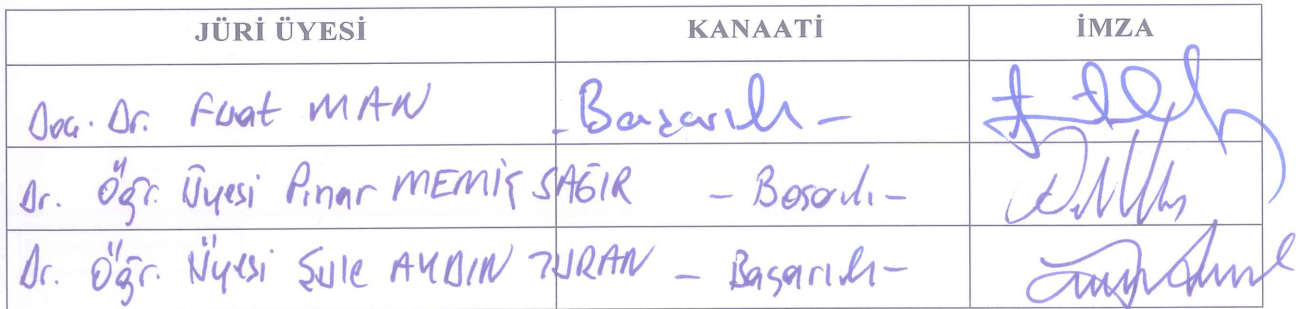 JÜRİ ÜYESİ KANAATİ İMZA
Doç. Dr. Fuat MAN - Başarılı -
Dr. Öğr. Üyesi Pınar MEMİŞ SAĞIR - Başarılı -
Dr. Öğr. Üyesi Şule AYDIN TURAN - Başarılı -